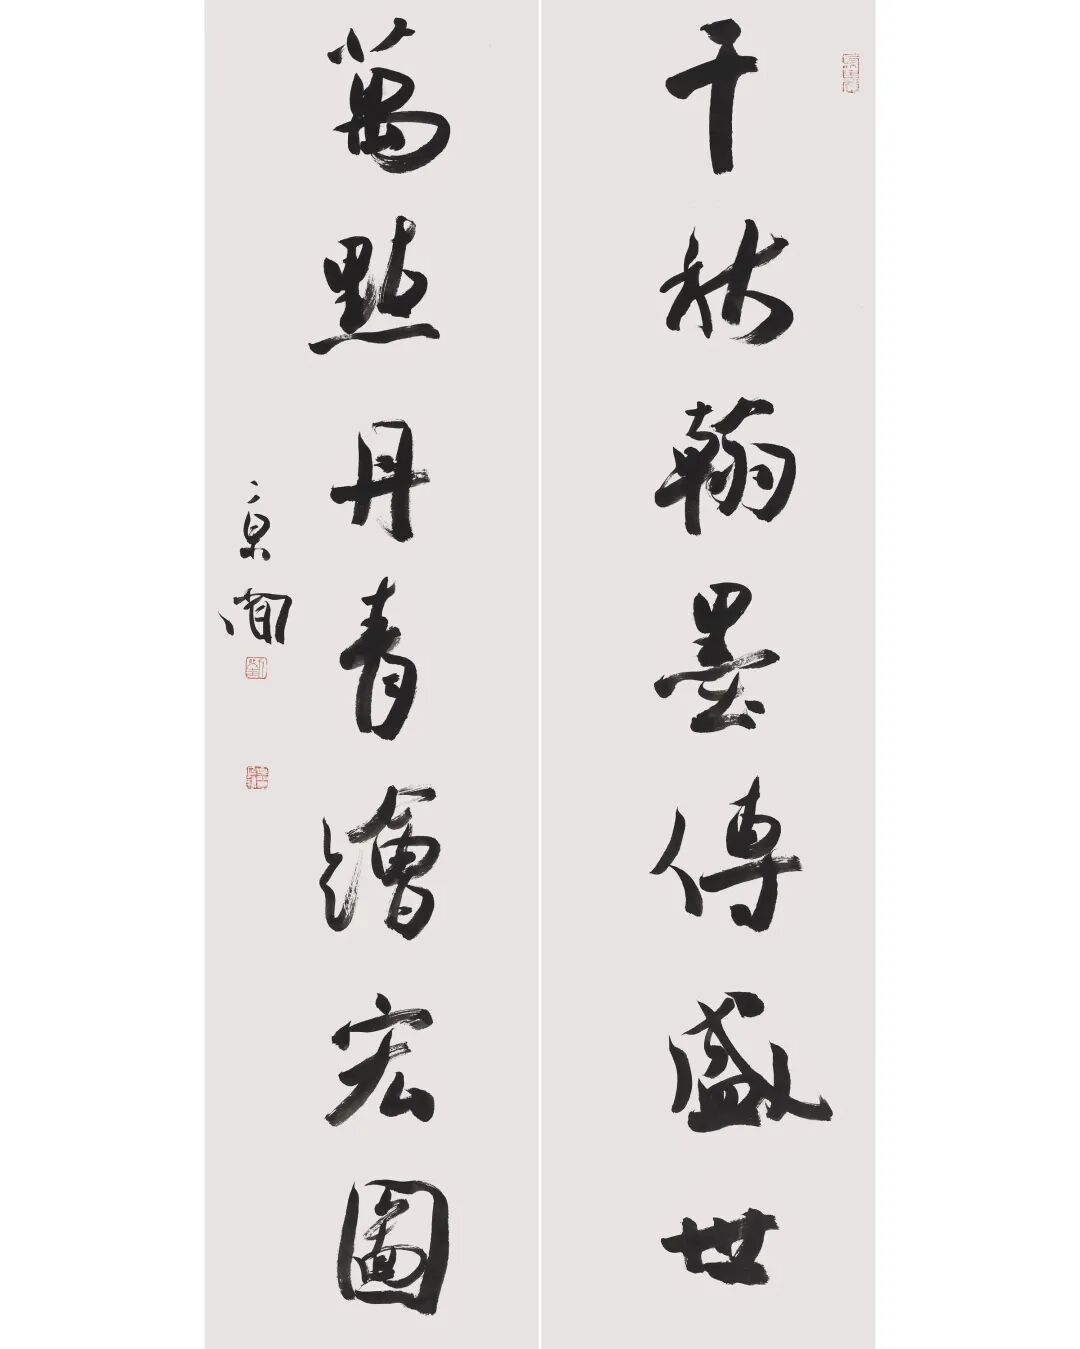 千秋翰墨傳盛世
萬點丹青繪宏圖
京閘